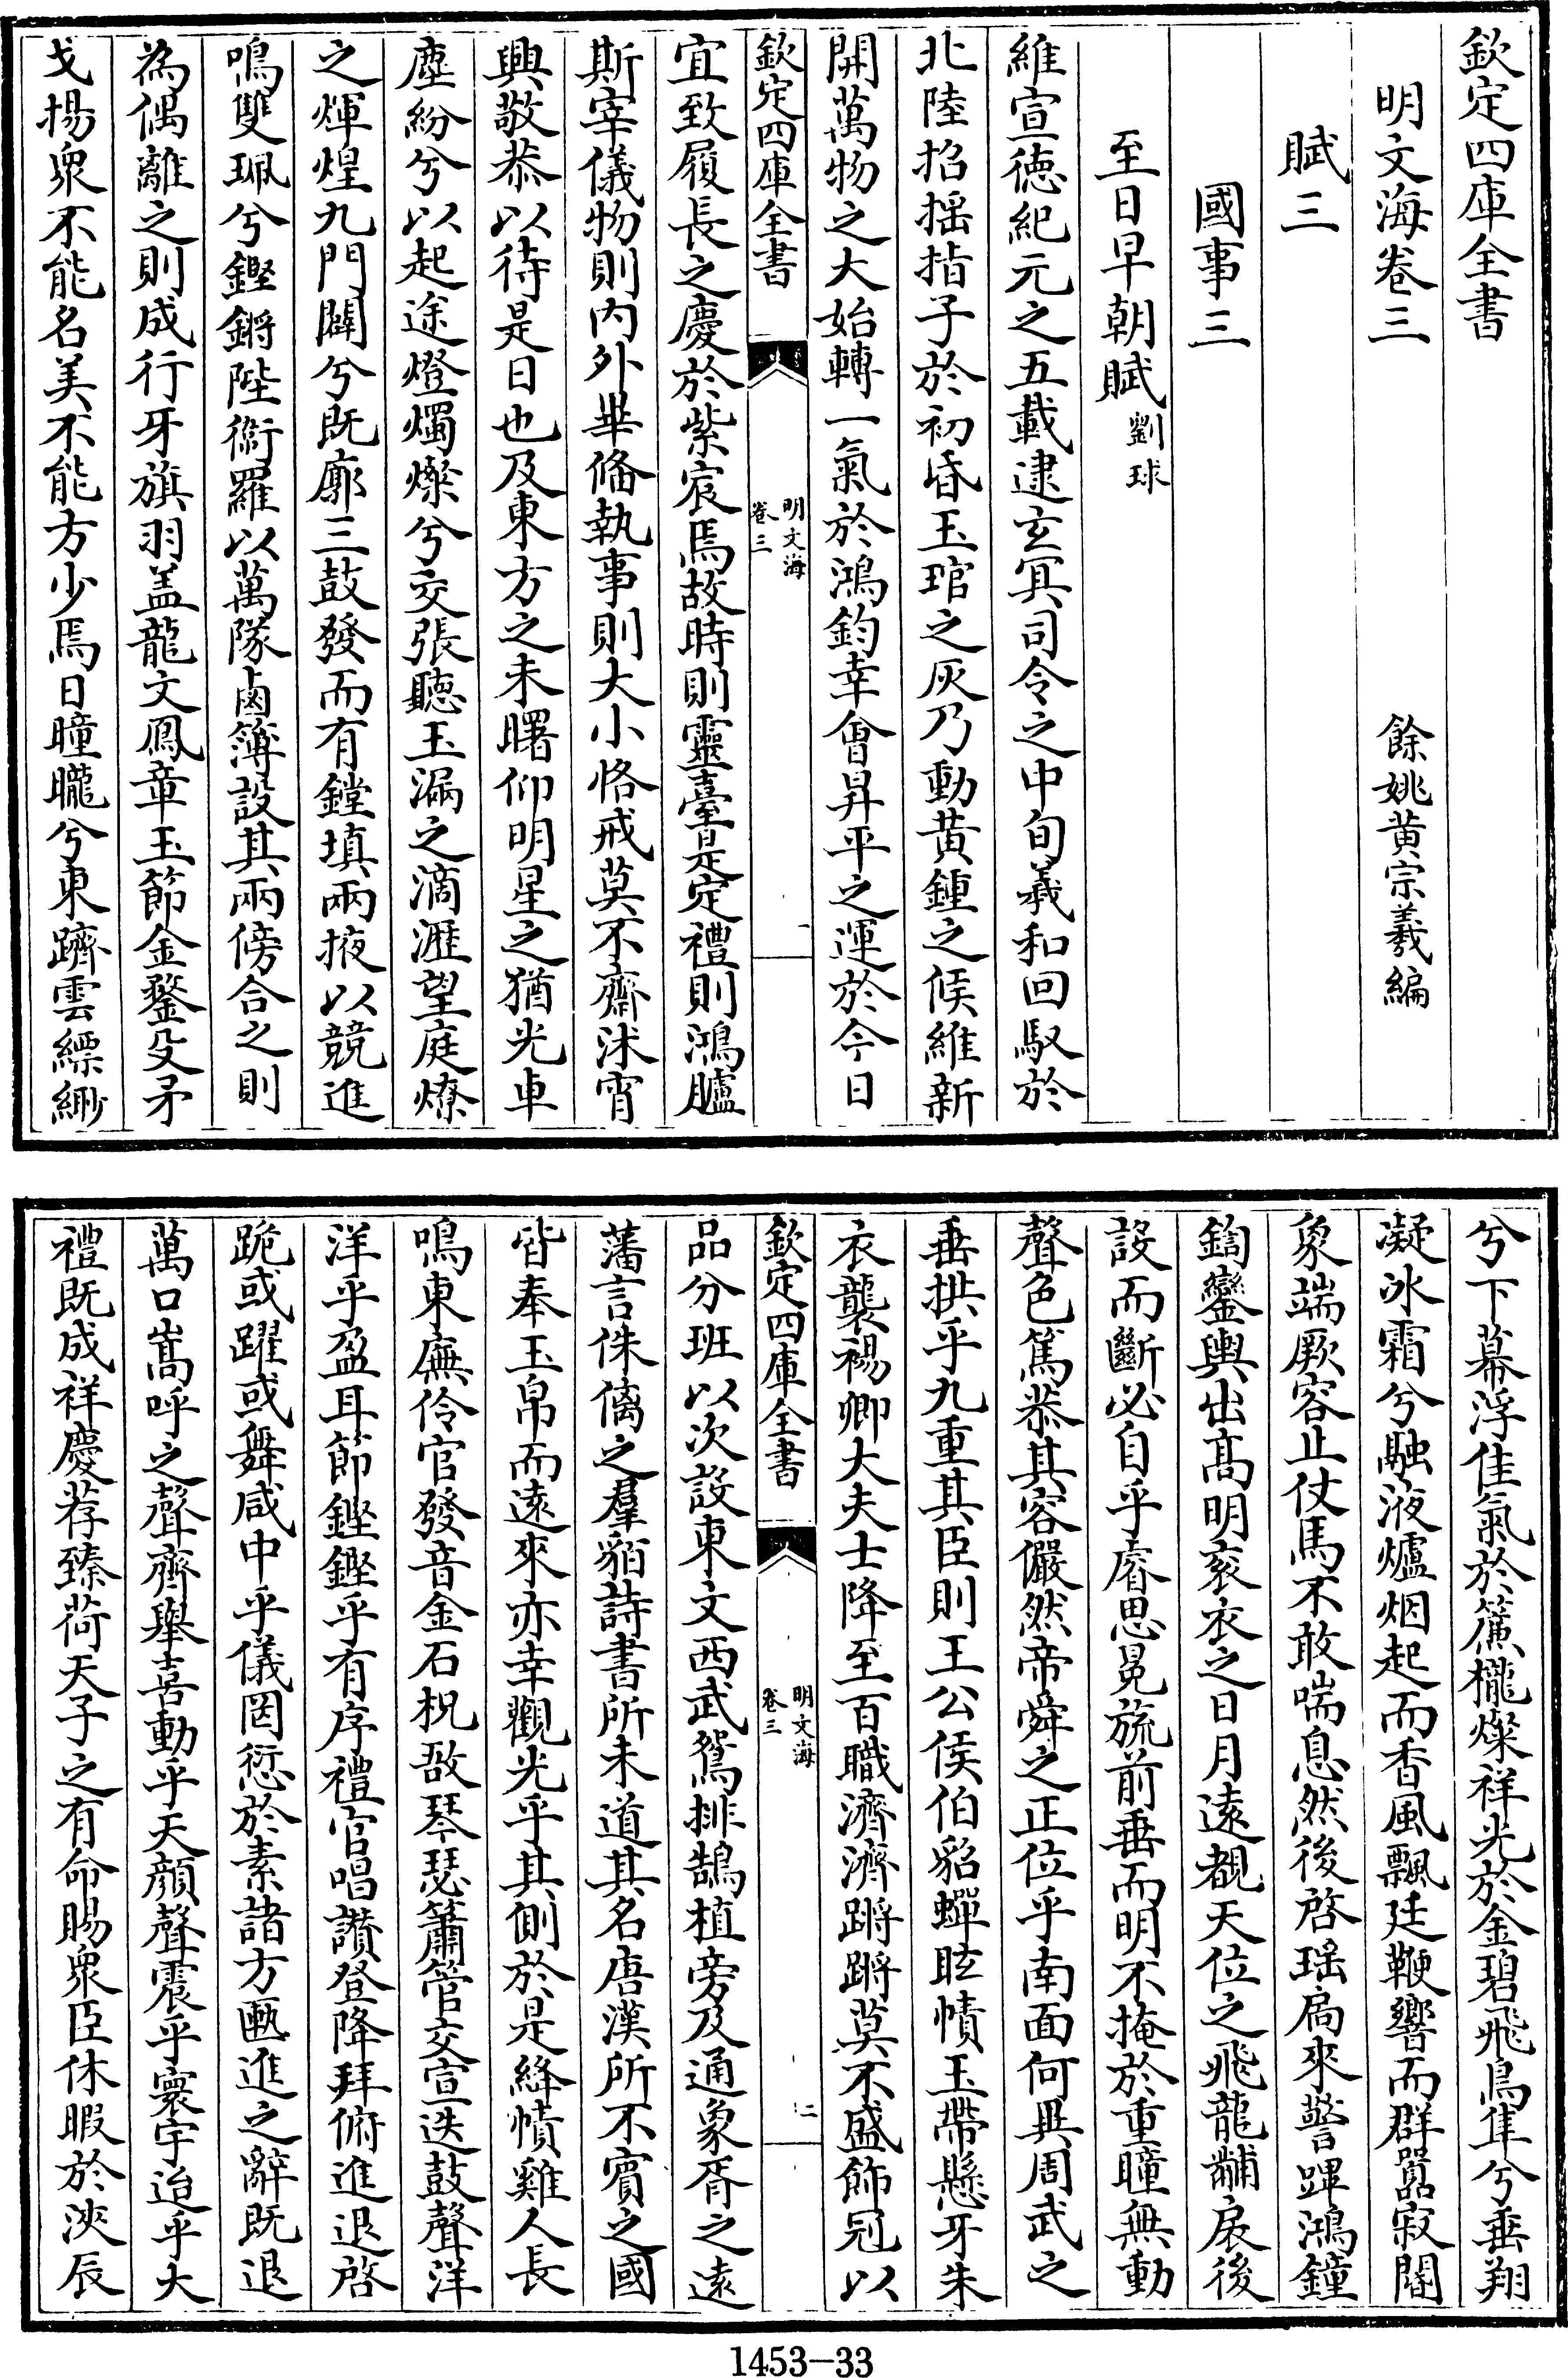 欽定四庫全書
明文海卷三
餘姚黃宗羲編
賦三
國事三
至日早朝賦劉球
維宣徳紀元之五載逮玄冥司令之中旬羲和回馭於
北陸招揺指子於初昏玉琯之灰乃動黄鍾之候維新
開萬物之大始轉一氣於鴻鈞幸㑹昇平之運於今日
欽定四庫全書
明文海
卷三
一
宜致履長之慶於紫宸焉故時則靈臺是定禮則鴻臚
斯宰儀物則内外畢偹執事則大小恪戒莫不齋沐宵
興敬恭以待是日也及東方之未曙仰明星之猶光車
塵紛兮以起途燈燭燦兮交張聽玉漏之滴瀝望庭燎
之煇煌九門闢兮既廓三鼓發而有鏜填兩掖以競進
鳴雙珮兮鏗鏘陛衞羅以萬隊鹵簿設其兩傍合之則
為偶離之則成行牙旗羽盖龍文鳳章玉節金鍪殳矛
戈揚衆不能名美不能方少焉日曈曨兮東躋雲縹緲
兮下幕浮佳氣於簾櫳燦祥光於金碧飛鳥隼兮垂翔
凝冰霜兮融液爐烟起而香風飄廷鞭響而群囂寂閽
象端厥容止仗馬不敢喘息然後啓瑶扃來警蹕鴻鐘
鍧鑾輿出髙明衮衣之日月逺覩天位之飛龍黼扆後
設而斷必自乎睿思冕旒前垂而明不掩於重瞳無動
聲色篤恭其容儼然帝舜之正位乎南面何異周武之
垂拱乎九重其臣則王公侯伯貂蟬眩幘玉帶懸牙朱
衣襲裼卿大夫士降至百職濟濟蹡蹡莫不盛飾冠以
欽定四庫全書
明文海
卷三
二
品分班以次設東文西武鴛排鵠植旁及通象胥之逺
藩言侏㒧之羣貊詩書所未道其名唐漢所不賓之國
皆奉玉帛而逺來亦幸觀光乎其側於是絳幘雞人長
鳴東廡伶官發音金石柷敔琴瑟簫管交宣迭鼓聲洋
洋乎盈耳節鏗鏗乎有序禮官唱讃登降拜俯進退啓
跪或躍或舞咸中乎儀罔愆於素諸方匭進之辭既退
萬口嵩呼之聲齊舉喜動乎天顔聲震乎寰宇迨乎大
禮既成祥慶荐臻荷天子之有命賜衆臣休暇於浹辰
1453-33